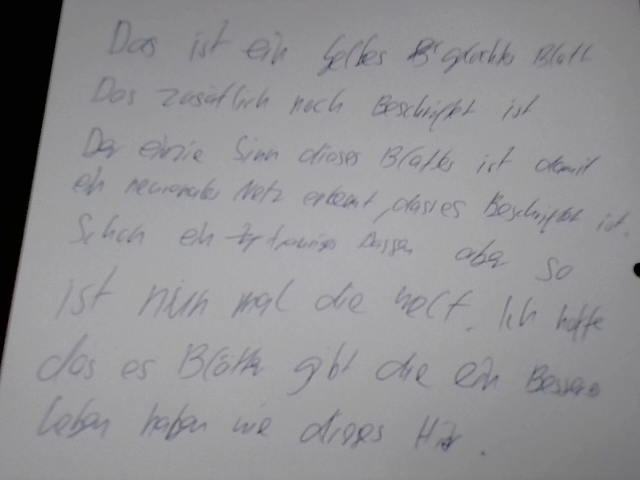 Das ist ein gelbes gelochtes Blatt
Das zusätlich noch Beschriftet ist
Der einzie Sinn dieses Blattes ist damit
ein neuronales Netz erkennt, dass es Beschriftet ist.
Schon ein trauriges Dassen aber so
ist nun mal die welt. Ich hoffe
das es Blätter gibt die ein Besseres
leben haben wie dieses Hir.